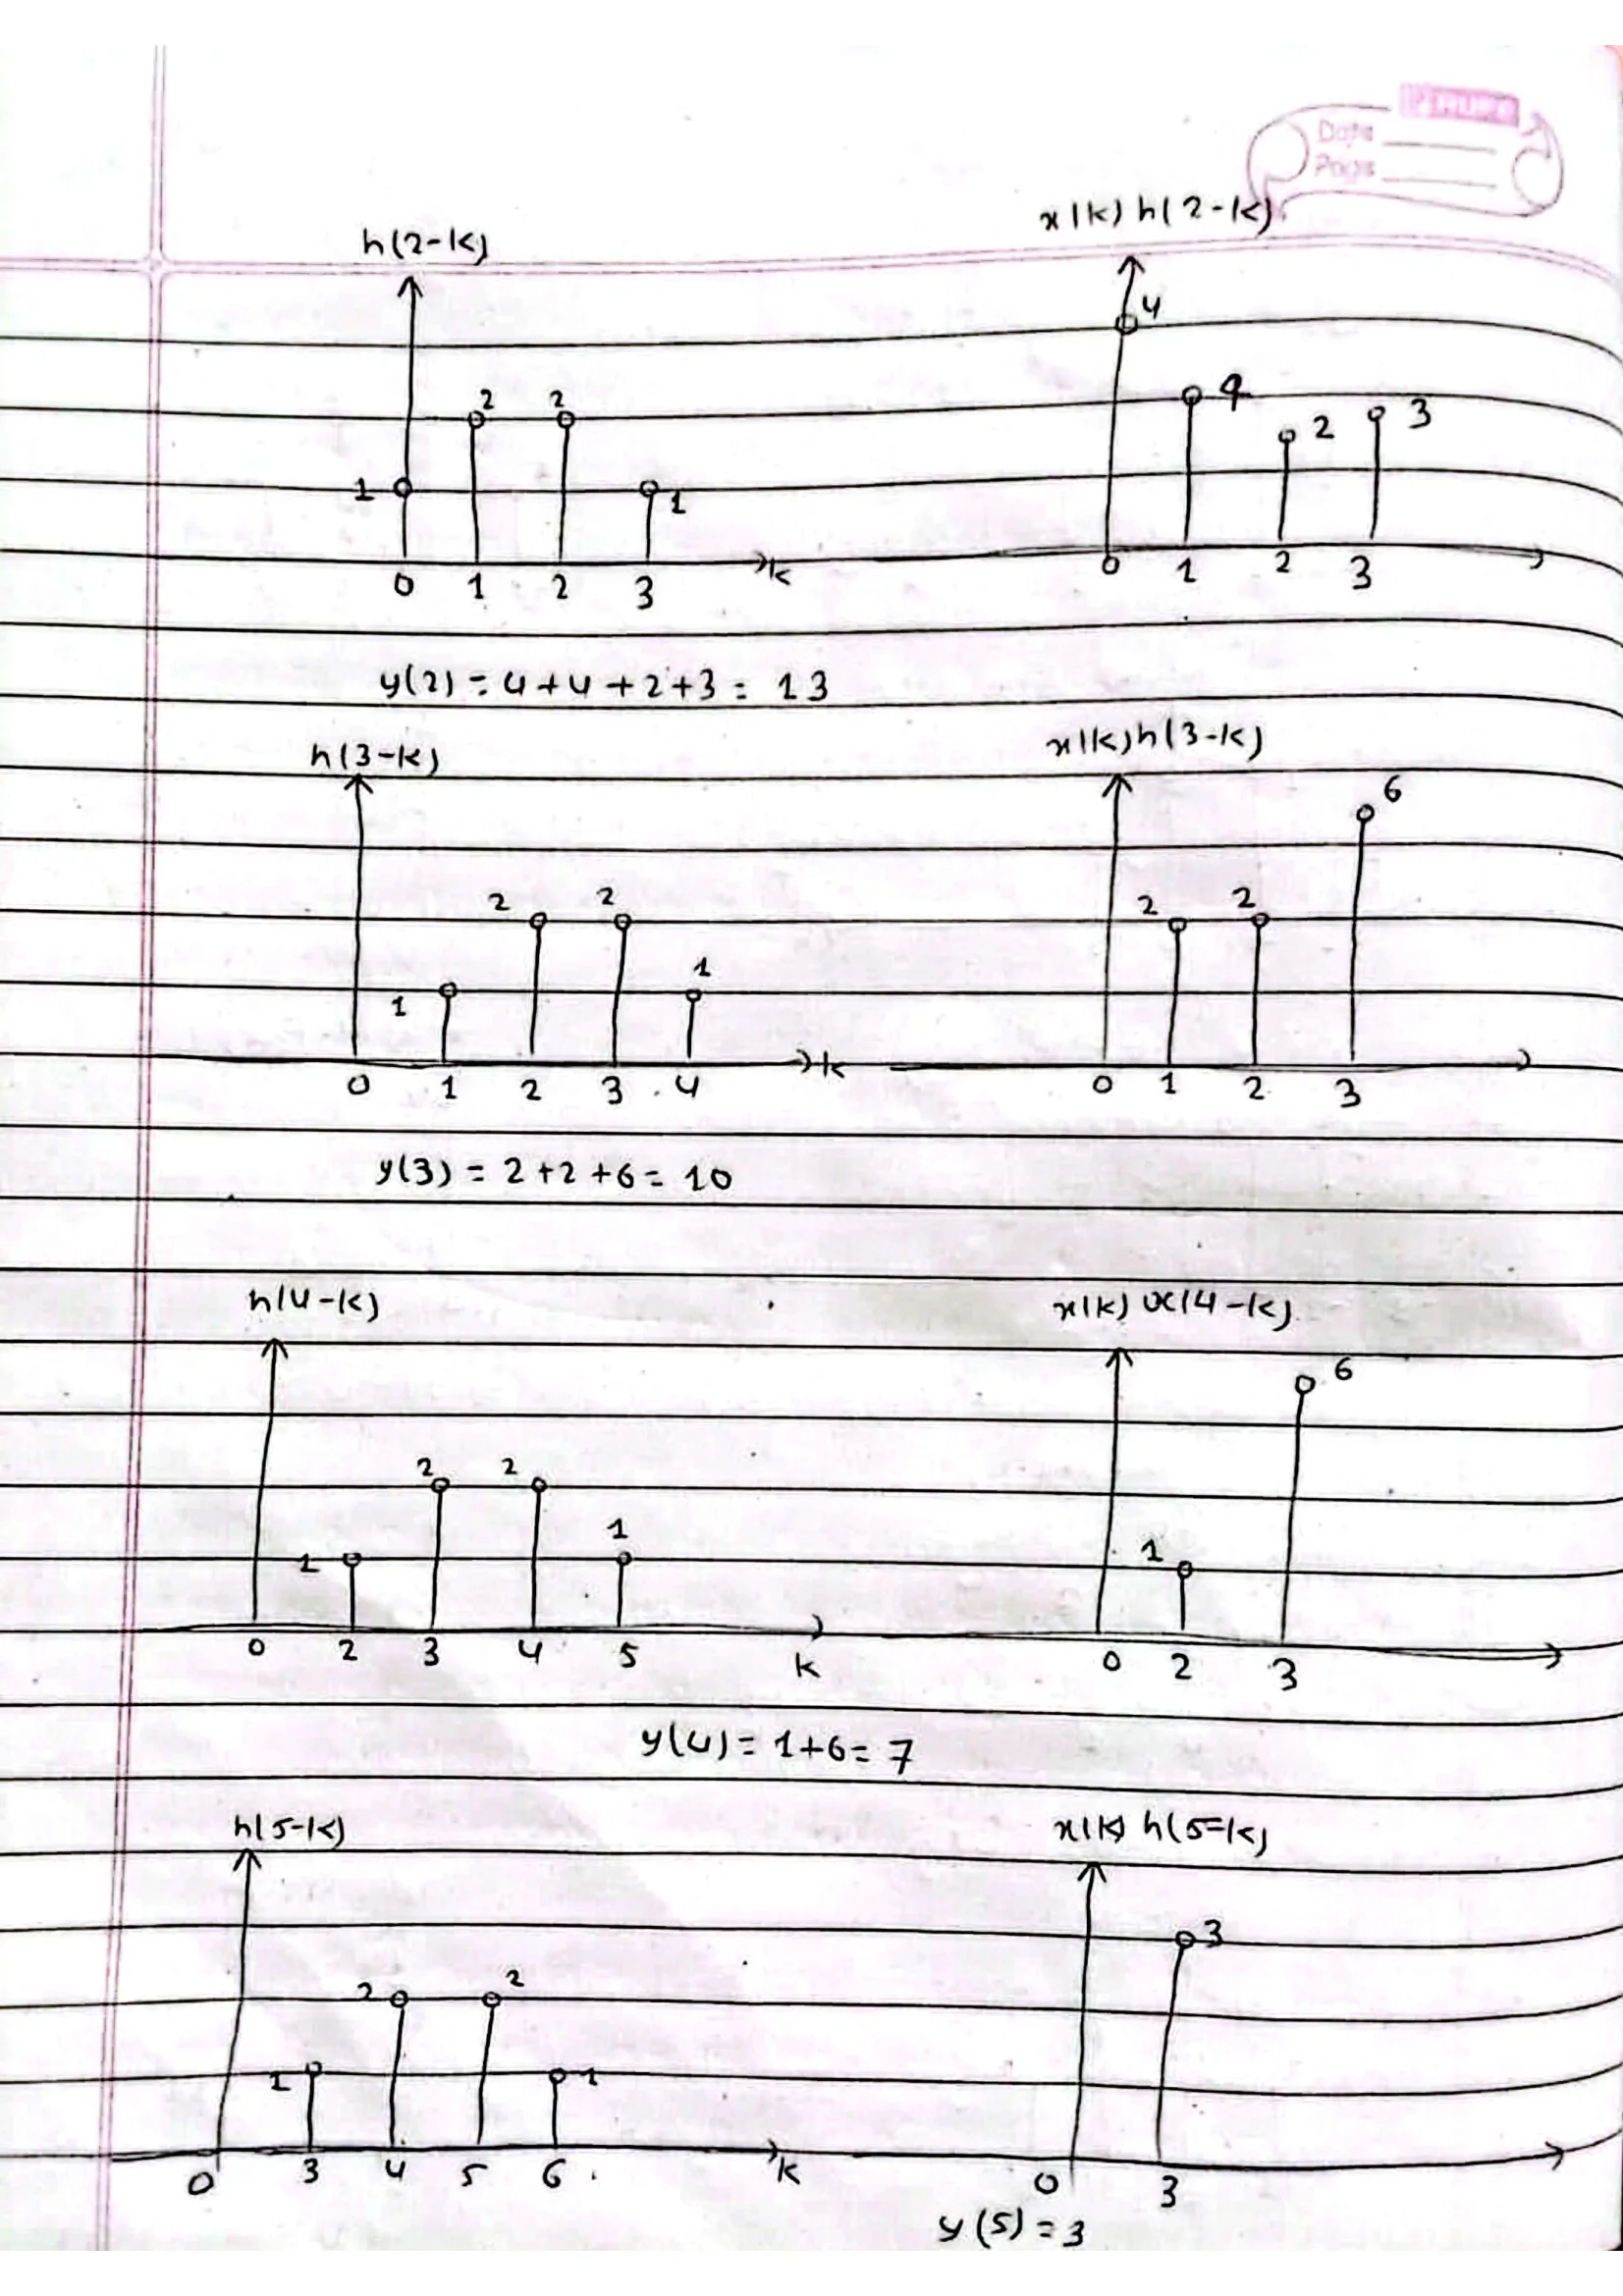 Date
Page
h(2-k)
x(k) h(2-k)
4
2 2
4
2 3
1 1
0 1 2 3 k
0 1 2 3
y(2) = 4+4+2+3 = 13
h(3-k)
x(k)h(3-k)
6
2 2
2 2
1 1
0 1 2 3 4 k
0 1 2 3
y(3) = 2+2+6 = 10
h(4-k)
x(k) x(4-k)
6
2 2
1 1
1
0 2 3 4 5 k
0 2 3
y(4) = 1+6 = 7
h(5-k)
x(k) h(5-k)
3
2 2
1 1
0 3 4 5 6 k
0 3
y(5) = 3